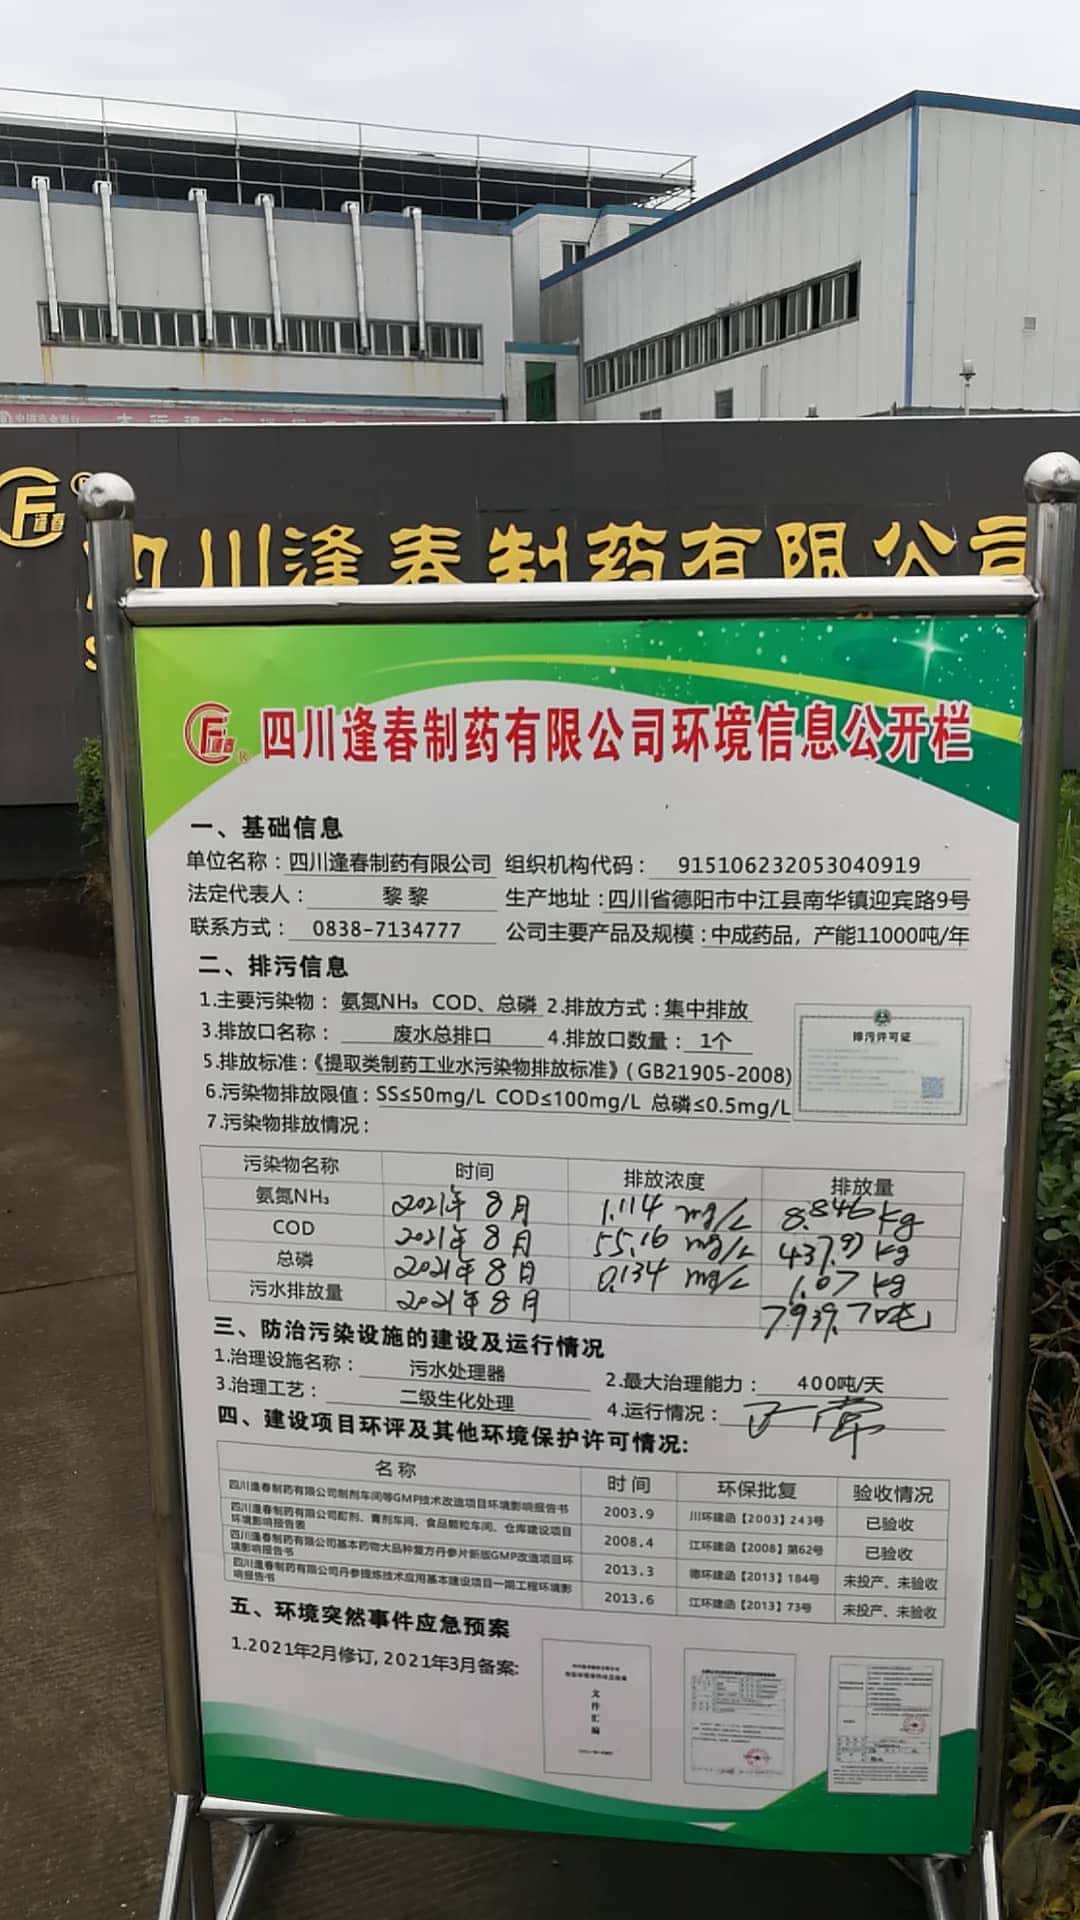 四川逢春制药有限公司
四川逢春制药有限公司环境信息公开栏
一、基础信息
单位名称：四川逢春制药有限公司 组织机构代码： 915106232053040919
法定代表人： 黎黎 生产地址：四川省德阳市中江县南华镇迎宾路9号
联系方式： 0838-7134777 公司主要产品及规模：中成药品，产能11000吨/年
二、排污信息
1.主要污染物： 氨氮NH₃ COD、总磷 2.排放方式：集中排放
3.排放口名称： 废水总排口 4.排放口数量： 1个
5.排放标准：《提取类制药工业水污染物排放标准》（GB21905-2008）
6.污染物排放限值：SS≤50mg/L COD≤100mg/L 总磷≤0.5mg/L
7.污染物排放情况：
排污许可证
污染物名称 时间 排放浓度 排放量
氨氮NH₃ 2021年8月 1.114 mg/L 8.846 kg
COD 2021年8月 55.16 mg/L 437.97 kg
总磷 2021年8月 0.134 mg/L 1.07 kg
污水排放量 2021年8月 7939.70吨
三、防治污染设施的建设及运行情况
1.治理设施名称： 污水处理器 2.最大治理能力： 400吨/天
3.治理工艺： 二级生化处理 4.运行情况： 正常
四、建设项目环评及其他环境保护许可情况：
名称 时间 环保批复 验收情况
四川逢春制药有限公司制剂车间等GMP技术改造项目环境影响报告书 2003.9 川环建函【2003】243号 已验收
四川逢春制药有限公司酊剂、膏剂车间、食品颗粒车间、仓库建设项目
环境影响报告表 2008.4 江环建函【2008】第62号 已验收
四川逢春制药有限公司基本药物大品种复方丹参片新版GMP改造项目环
境影响报告书 2013.3 德环建函【2013】184号 未投产、未验收
四川逢春制药有限公司丹参提炼技术应用基本建设项目一期工程环境影
响报告书 2013.6 江环建函【2013】73号 未投产、未验收
五、环境突然事件应急预案
1.2021年2月修订，2021年3月备案：
文件汇编